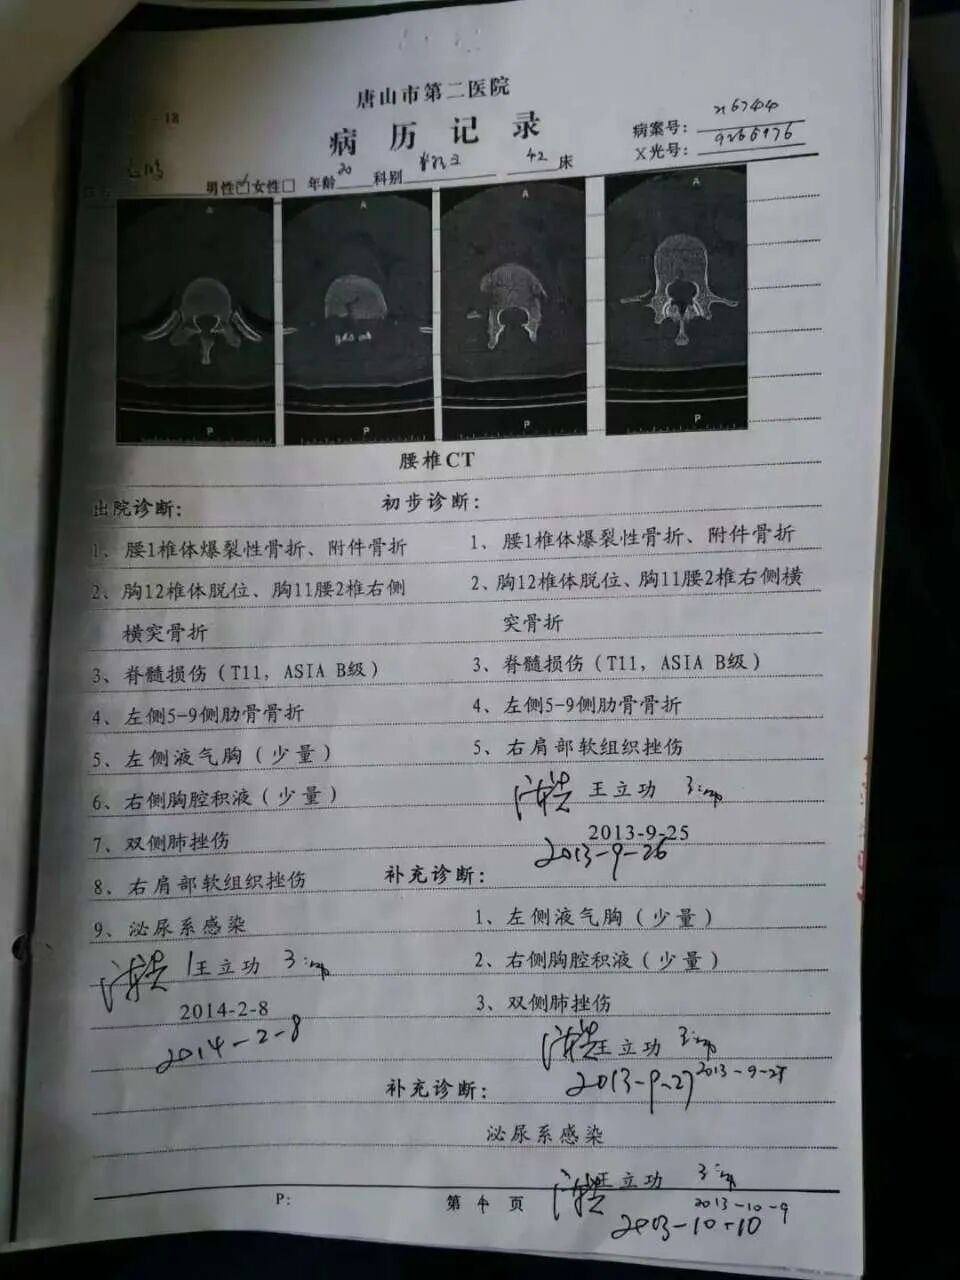 唐山市第二医院
病历记录
病案号:
X光号: 9266976
-18
男性☑女性□ 年龄 30 科别 42 床
A A A A
P P P P
腰椎CT
出院诊断: 初步诊断:
1、腰1椎体爆裂性骨折、附件骨折 1、腰1椎体爆裂性骨折、附件骨折
2、胸12椎体脱位、胸11腰2椎右侧 2、胸12椎体脱位、胸11腰2椎右侧横
横突骨折 突骨折
3、脊髓损伤(T11, ASIA B级) 3、脊髓损伤(T11, ASIA B级)
4、左侧5-9侧肋骨骨折 4、左侧5-9侧肋骨骨折
5、左侧液气胸(少量) 5、右肩部软组织挫伤
6、右侧胸腔积液(少量) 王立功
7、双侧肺挫伤 2013-9-25
2013-9-26
8、右肩部软组织挫伤 补充诊断:
9、泌尿系感染 1、左侧液气胸(少量)
王立功 2、右侧胸腔积液(少量)
2014-2-8 3、双侧肺挫伤
2014-2-8 王立功
补充诊断: 2013-9-27
泌尿系感染
王立功
P: 第4页 2013-10-9
2013-10-10